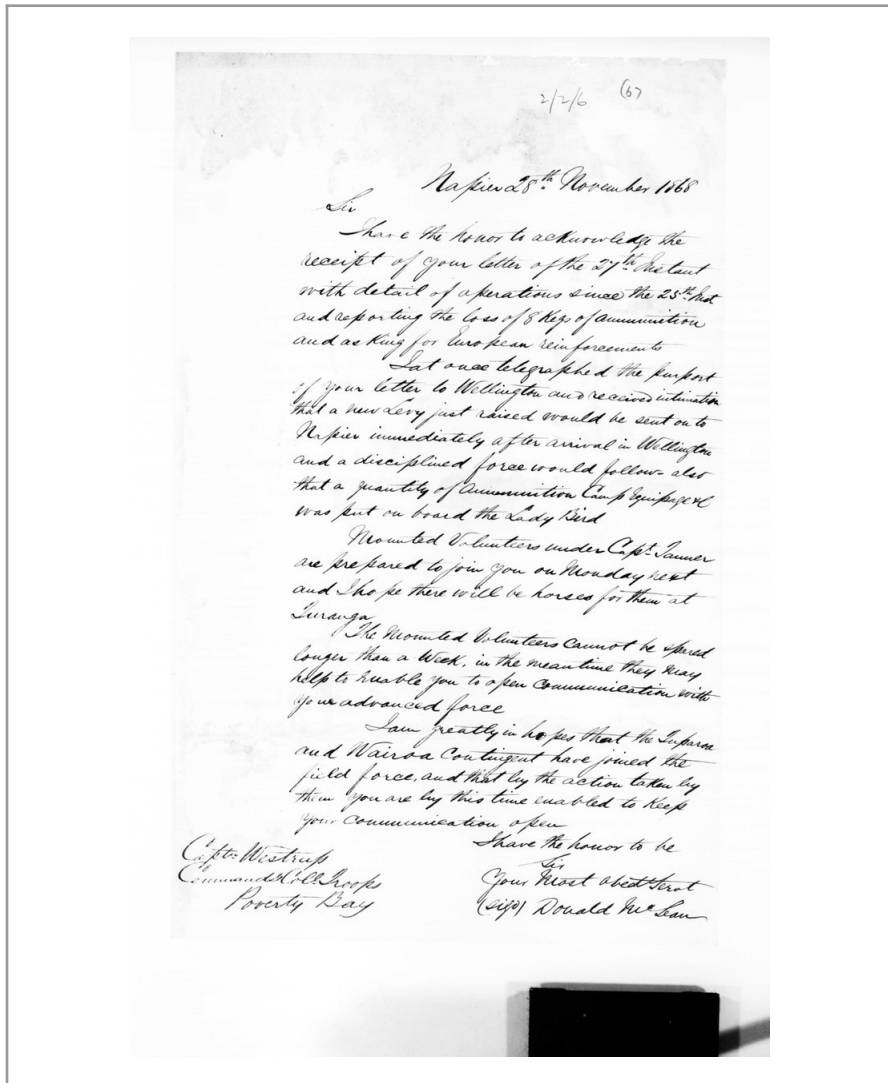 2/2/6 (67
Napier 28th November 1868
Sir
I have the honor to acknowledge the
receipt of your letter of the 27th Instant
with detail of operations since the 25th Inst
and reporting the loss of 8 Kegs of ammunition
and asking for European reinforcements
I at once telegraphed the purport
of your letter to Wellington and received intimation
that a new Levy just raised would be sent on to
Napier immediately after arrival in Wellington
and a disciplined force would follow - also
that a quantity of ammunition Camp Equipage &c
was put on board the Lady Bird
Mounted Voluntiers under Capt. Tanner
are prepared to join you on Monday next
and I hope there will be horses for them at
Turanga
The Mounted Volunteers cannot be spared
longer than a Week, in the meantime they may
help to enable you to open communication with
your advanced force
I am greatly in hopes that the Tuparoa
and Wairoa Contingent have joined the
field force, and that by the action taken by
them you are by this time enabled to Keep
your communication open
I have the honor to be
Sir
Your Most obedt Servt
(sigd) Donald McLean
Captn Westrup
Commandg Col. Troops
Poverty Bay